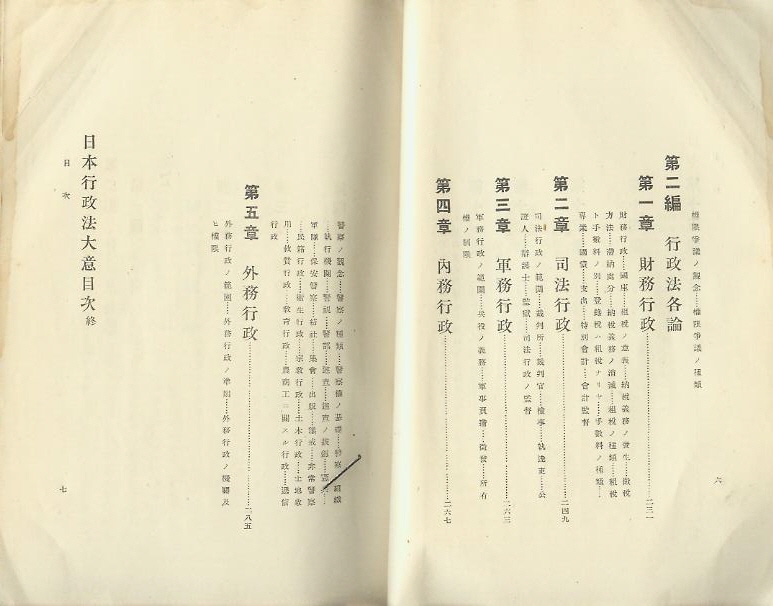 權限爭議ノ觀念……權限爭議ノ種類
第二編 行政法各論
第一章 財務行政……二三一
財務行政……國庫……租稅ノ意義……納稅義務ノ發生……徵稅
方法……滯納處分……納稅義務ノ消滅……租稅ノ種類……租稅
ト手數料ノ別……登錄稅ハ租稅ナリヤ……手數料ノ種類……
專業……國債……支出……特別會計……會計監督
第二章 司法行政……二四九
司法行政ノ範圍……裁判所……裁判官……檢事……執達吏……公
證人……辯護士……監獄……司法行政ノ監督
第三章 軍務行政……二六三
軍務行政ノ範圍……兵役ノ義務……軍事負擔……徵發……所有
權ノ制限
六
第四章 內務行政……二六七
警察ノ觀念……警察ノ種類……警察權ノ基礎……警察ノ組織
……執行機關……警視……警部……巡查……巡查ノ
軍隊……保安警察……結社……集會……出版……非常警察
……民籍行政……衛生行政……宗敎行政……土木行政……土地收
用……救貧行政……敎育行政……農商工ニ關スル行政……遞信
行政
第五章 外務行政……二八五
外務行政ノ範圍……外務行政ノ準則……外務行政ノ機關及
ヒ權限
日本行政法大意目次終
目次
七